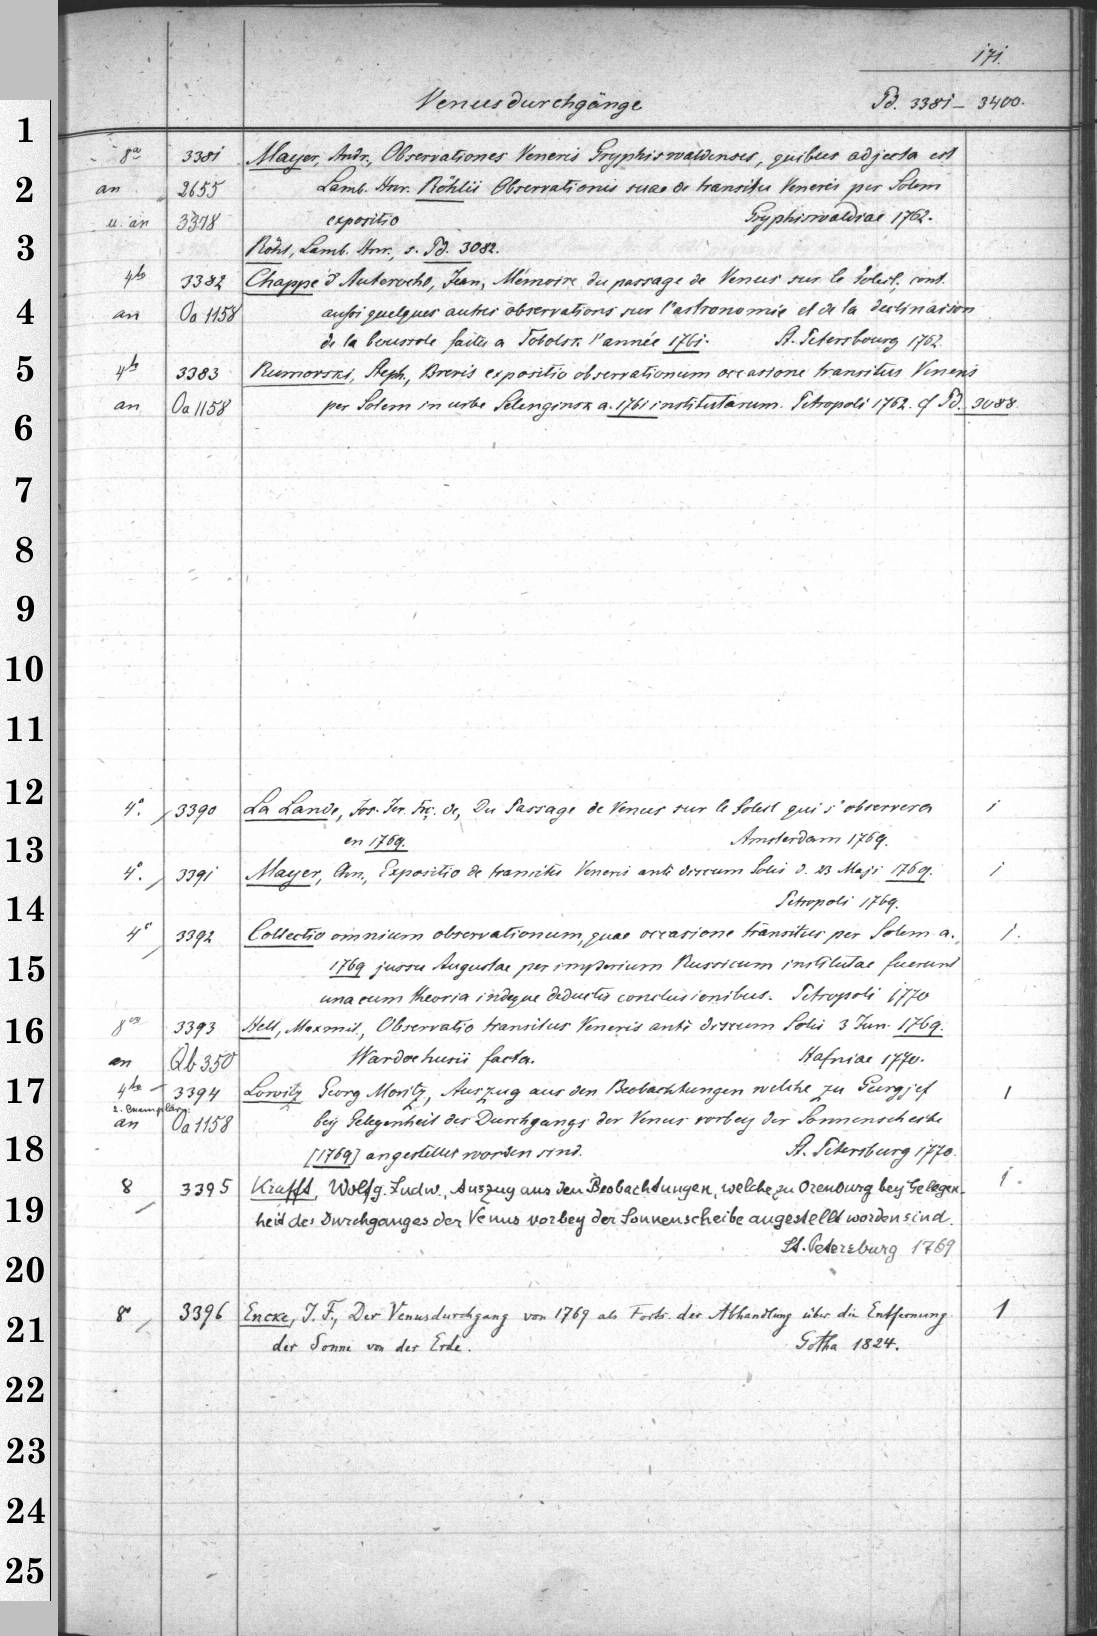 171.
Venusdurchgänge Pd. 3381 - 3400.
1
8º 3381 Mayer, Andr., Observationes Veneris Gryphiswaldenses, quibus adjecta est
2
an 2655 Lamb. Hnr. Röhlii Observationis suae de transitu Veneris per Solem
u. an 3378 expositio Gryphiswaldiae 1762.
3
Röhl, Lamb. Hnr., s. Pd. 3082.
4to 3382 Chappe d'Auteroche, Jean, Mémoire du passage de Venus sur le Soleil, cont.
4
an Oa 1158 aussi quelques autres observations sur l'astronomie et de la declinaison
de la boussole faites a Tobolsk l'année 1761. St. Petersbourg 1762
5
4to 3383 Rumovski, Steph., Brevis expositio observationum occasione transitus Veneris
an Oa 1158 per Solem in urbe Selenginsk a. 1761 institutarum. Petropoli 1762. cf Pd. 3088.
6
7
8
9
10
11
12
4º. 3390 La Lande, Jos. Jer. Frç. de, Du Passage de Venus sur le Soleil qui s'observera 1
en 1769. Amsterdam 1769.
13
4º. 3391 Mayer, Chn., Expositio de transitu Veneris ante discum Solis d. 23 Maji 1769. 1
Petropoli 1769.
14
4º 3392 Collectio omnium observationum, quae occasione transitus per Solem a. 1.
15
1769 jussu Augustae per imperium Russicum institutae fuerunt
una cum theoria indeque deductis conclusionibus. Petropoli 1770
16
8vo 3393 Hell, Maxmil., Observatio transitus Veneris ante discum Solis 3 Jun. 1769.
an Qb 350 Wardoehusii facta. Hafniae 1770.
17
4to 3394 Lowitz Georg Moritz, Auszug aus den Beobachtungen welche zu Gurgjef 1
2. Exemplar:
an Oa 1158 bey Gelegenheit des Durchgangs der Venus vorbey der Sonnenscheibe
18
[1769] angestellet worden sind. St. Petersburg 1770.
8 3395 Krafft, Wolfg. Ludw., Auszug aus den Beobachtungen, welche zu Orenburg bey Gelegen- 1.
19
heit des Durchganges der Venus vorbey der Sonnenscheibe angestellt worden sind.
St. Petersburg 1769
20
8º 3396 Encke, J. F., Der Venusdurchgang von 1769 als Forts. der Abhandlung über die Entfernung 1
21
der Sonne von der Erde. Gotha 1824.
22
23
24
25